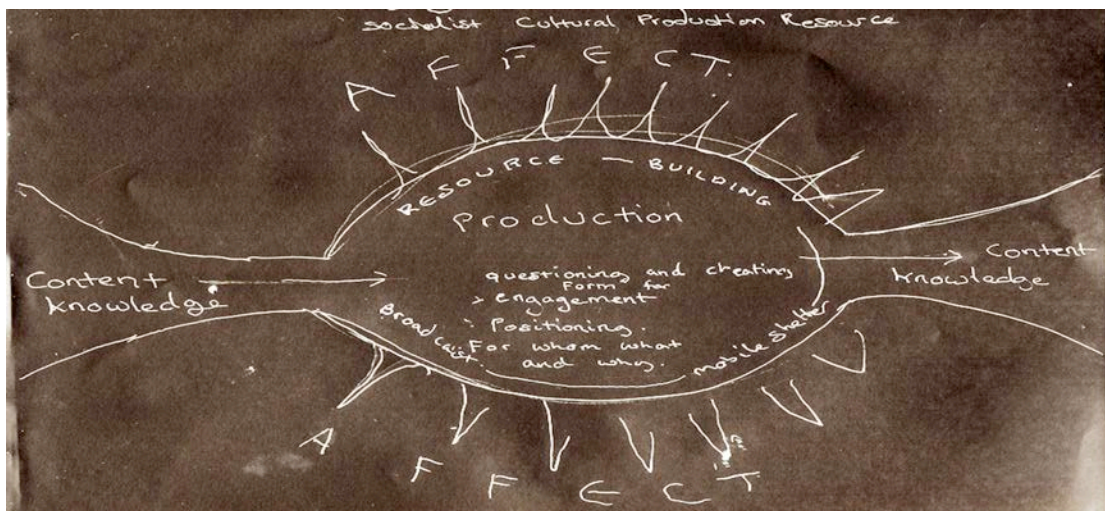 socialist Cultural Production Resource
AFFECT.
RESOURCE - BUILDING
Production
Content
knowledge
questioning and creating
Form for
engagement
Positioning.
For whom what
and why.
Broadcast.
mobile shelter
Content
knowledge
AFFECT